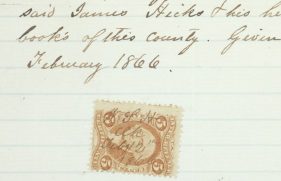 said James Hicks & his he
books of this county. Given
February 1866.
5 5